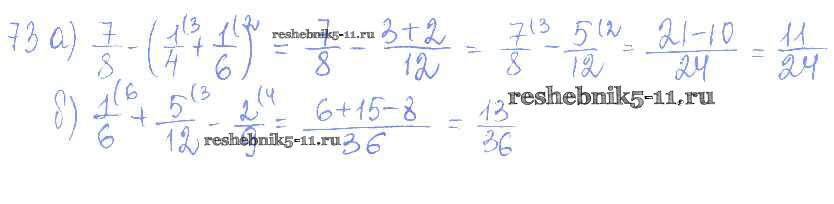 73 а) 7/8 - (1(3/4 + 1(2/6) = 7/8 - 3+2/12 = 7(3/8 - 5(2/12 = 21-10/24 = 11/24
reshebnik5-11.ru
б) 1(6/6 + 5(3/12 - 2(4/9 = 6+15-8/36 = 13/36
reshebnik5-11.ru
reshebnik5-11.ru